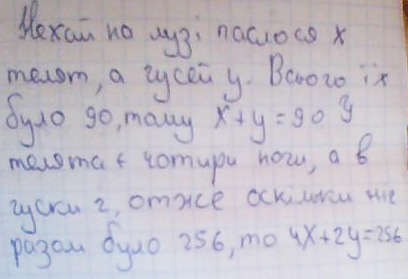 Нехай на лузі паслося x
телят, а гусей y. Всього їх
було 90, тому x+y=90 У
телята є чотири ноги, а в
гуски 2, отже оскільки ніг
разом було 256, то 4x+2y=256